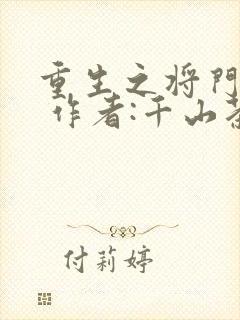 重生之将门
作者:千山茶
付莉婷